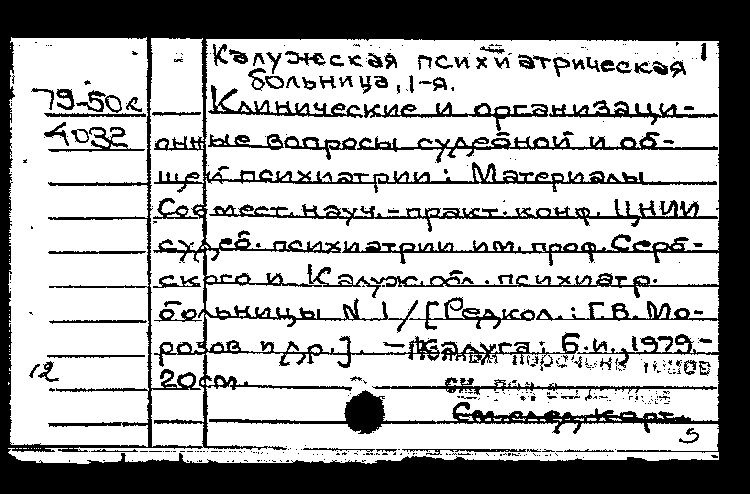 Калужская психиатрическая 1
больница, 1-я.
79-50к Клинические и организаци-
4032 онные вопросы судебной и об-
щей психиатрии: Материалы
Совмест. науч.-практ. конф. ЦНИИ
судеб. психиатрии им. проф. Серб-
ского и Калуж. обл. психиатр.
больницы N 1 / [Редкол.: Г.В. Мо-
розов и др.]. - Калуга: Б.и., 1979.-
Полный перечень томов
12 20см.
см. под
См. след. карт.
5